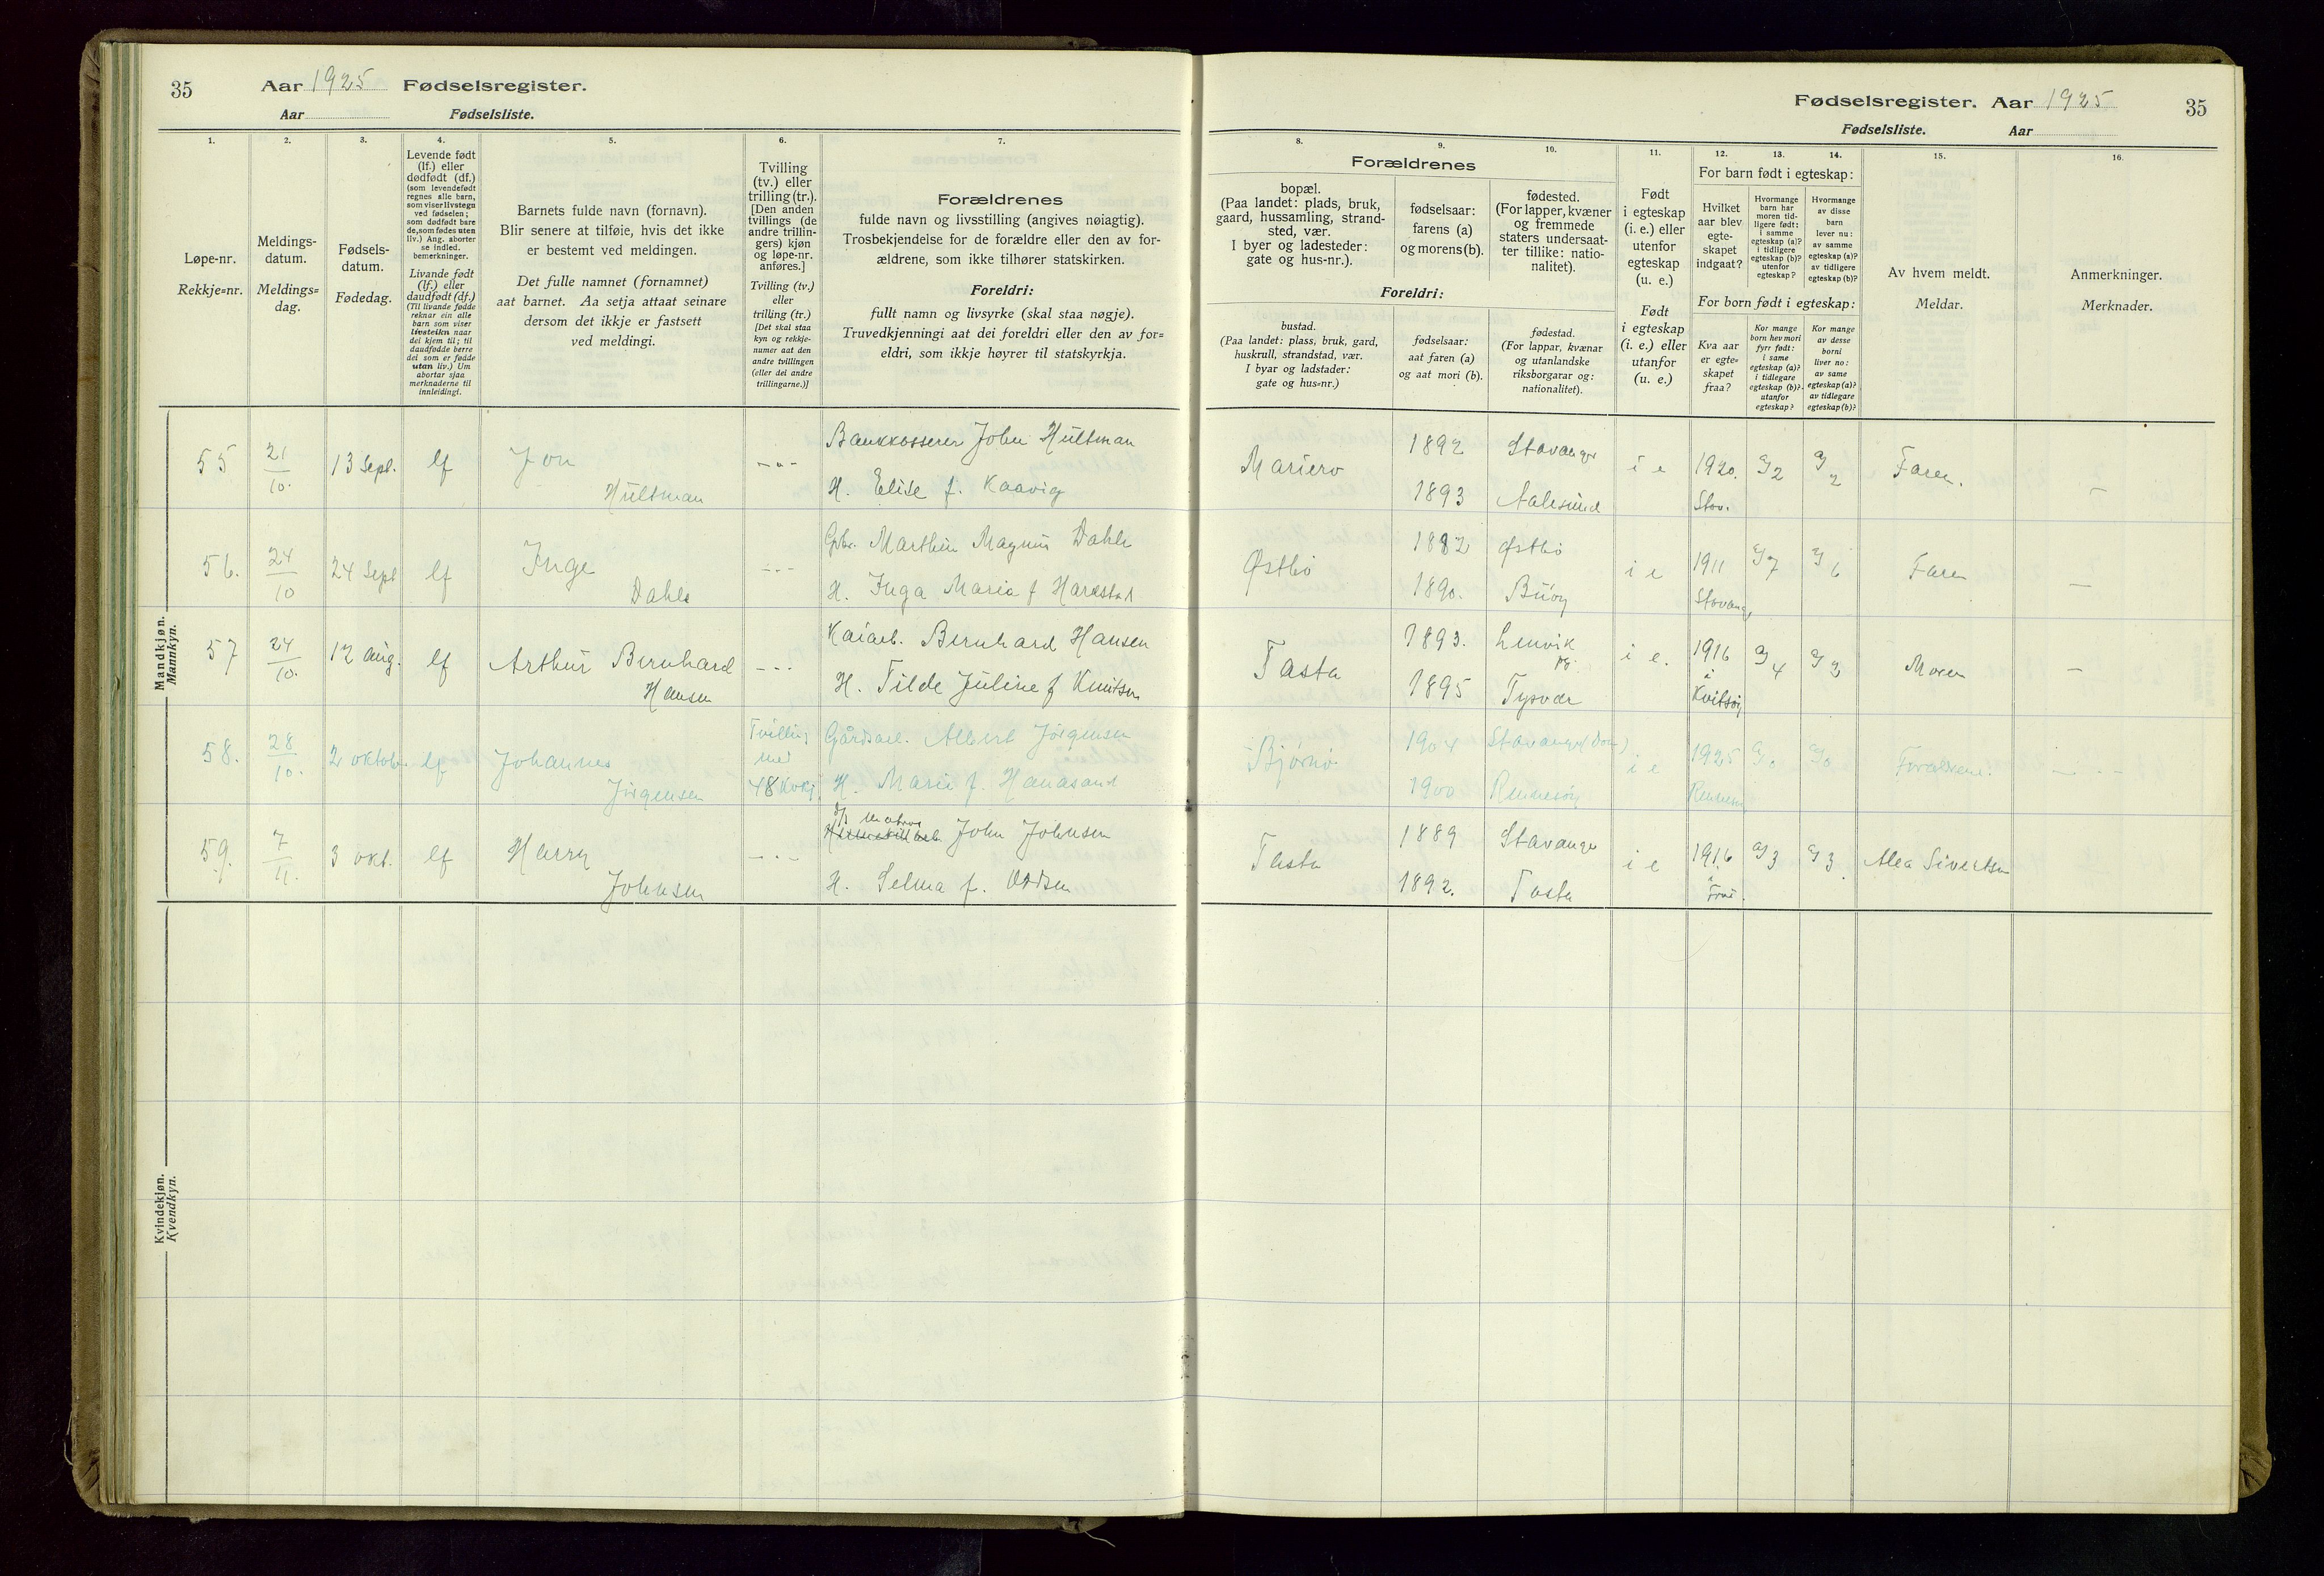 35
Aar 1925 Fødselsregister.
Aar Fødselsliste.
1.
2.
3.
4.
5.
6.
7.
Løpe-nr.
Rekkje=nr.
Meldings-
datum.
Meldings=
dag.
Fødsels-
datum.
Fødedag.
Levende født
(lf.) eller
dødfødt (df.)
(som levendefødt
regnes alle barn,
som viser livstegn
ved fødselen;
som dødfødt bare
de, som fødes uten
liv.) Ang. aborter
se indled.
bemerkninger.
Livande født
(lf.) eller
daudfødt (df.)
(Til livande fødde
reknar ein alle
barn som viser
livsteikn naar
dei kjem til; til
daudfødde berre
dei som er fødde
utan liv.) Um
abortar sjaa
merknaderne til
innleidingi.
Barnets fulde navn (fornavn).
Blir senere at tilføie, hvis det ikke
er bestemt ved meldingen.
Det fulle namnet (fornamnet)
aat barnet. Aa setja attaat seinare
dersom det ikkje er fastsett
ved meldingi.
Tvilling
(tv.) eller
trilling (tr.).
[Den anden
tvillings (de
andre trillin-
gers) kjøn
og løpe-nr.
anføres.]
Tvilling (tv.)
eller
trilling (tr.)
[Det skal staa
kyn og rekkje-
numer aat den
andre tvillingen
(eller dei andre
trillingarne.)]
Forældrenes
fulde navn og livsstilling (angives nøiagtig).
Trosbekjendelse for de forældre eller den av for-
ældrene, som ikke tilhører statskirken.
Foreldri:
fullt namn og livsyrke (skal staa nøgje).
Truvedkjenningi aat dei foreldri eller den av for=
eldri, som ikkje høyrer til statskyrkja.
Mandkjøn.
Mannkyn.
55 21/10. 13 Sept. lf Jon Hultman - " - Bankkasserer John Hultman
H. Elise f. Kaavig
56. 24/10 24 Sept lf Inge Dahle - " - Gbr. Marthin Magnus Dahle
H. Inga Maria f Harestad
57 24/10. 12 aug. lf Arthur Bernhard Hansen - " - Kaiarb. Bernhard Hansen
H. Tilde Juline f Knutsen
58. 28/10. 2 oktob. lf Johannes Jørgensen Tvilling med 48 Kvkj. Gårdsarb. Albert Jørgensen
H. Marie f. Hanasand
59. 7/11. 3 okt. lf Harry Johnsen - " - John Johnsen
H. Selma f. Oddsen
Kvindekjøn.
Kvendkyn.
Fødselsregister. Aar 1925
35
Fødselsliste. Aar
8.
9.
10.
11.
12.
13.
14.
15.
16.
Forældrenes
bopæl.
(Paa landet: plads, bruk,
gaard, hussamling, strand-
sted, vær.
I byer og ladesteder:
gate og hus-nr.).
fødselsaar:
farens (a)
og morens (b).
fødested.
(For lapper, kvæner
og fremmede
staters undersaat-
ter tillike: natio-
nalitet).
Foreldri:
bustad.
(Paa landet: plass, bruk, gard,
huskrull, strandstad, vær.
I byar og ladstader:
gate og hus=nr.)
fødselsaar:
aat faren (a)
og aat mori (b).
fødestad.
(For lappar, kvænar
og utanlandske
riksborgarar og:
nationalitet).
Født
i egteskap
(i. e.) eller
utenfor
egteskap
(u. e.)
Født
i egteskap
(i. e.) eller
utanfor
(u. e.)
For barn født i egteskap:
Hvilket
aar blev
egte-
skapet
indgaat?
Hvormange
barn har
moren tid-
ligere født:
i samme
egteskap (a)?
i tidligere
egteskap (b)?
utenfor
egteskap?
Hvormange
av disse
barn
lever nu:
av samme
egteskap (a)?
av tidligere
egteskap (b)?
For born født i egteskap:
Kva aar
er egte=
skapet
fraa?
Kor mange
born hev mori
fyrr født:
i same
egteskap (a)?
i tidlegare
egteskap (b)?
utanfor
egteskap?
Kor mange
av desse
borni
liver no:
av same
egteskap (a)?
av tidlegare
egteskap (b)?
Av hvem meldt.
Meldar.
Anmerkninger.
Merknader.
Mariero 1892 Stavanger i e 1920. a/2 a/2 Faren. –
1893 Aalesund Stav.
Østbø 1882 Østbø i e 1911 a/7 a/6 Faren –
1890. Buøy Stavanger
Tasta 1893. Lenvik i e. 1916 a/4 a/3 Moren –
1895 Tysvær i Kvitsøy
Bjørnø 1904 Stavanger (Dom) i e 1925 a/0 a/0 Forældrene. – " –
1900 Rennesøy Rennesøy
Tasta 1889 Stavanger i e 1916 a/3 a/3. Alea Sivertsen
1892. Tasta